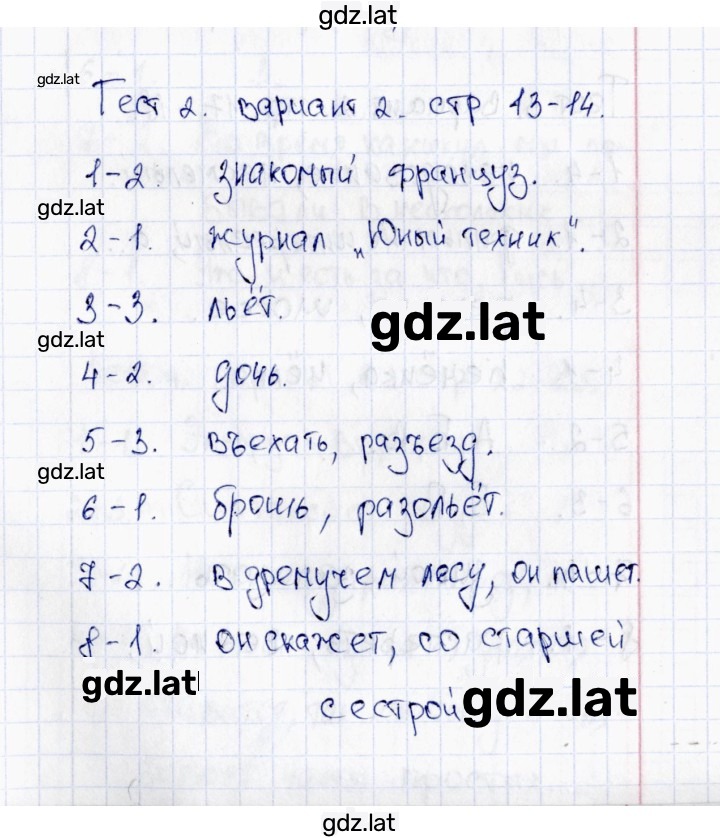 gdz.lat
gdz.lat
Тест 2. вариант 2. стр 13-14.
1-2. знакомый француз.
gdz.lat
2-1. журнал „Юный техник".
3-3. льёт.
gdz.lat
gdz.lat
4-2. дочь.
5-3. въехать, разъезд.
gdz.lat
6-1. брошь, разольёт.
7-2. в дремучем лесу, он пашет.
8-1. он скажет, со старшей
gdz.lat
сестрой
gdz.lat
gdz.lat